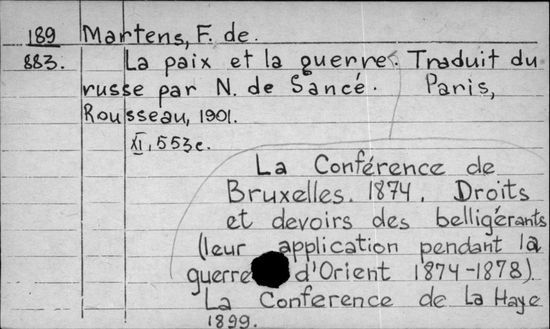 189 Martens, F. de.
883. La paix et la guerre. Traduit du
russe par N. de Sancé. Paris,
Rousseau, 1901.
XI, 553c.
La Conférence de
Bruxelles. 1874. Droits
et devoirs des belligérants
(leur application pendant la
guerre d'Orient 1874-1878).
La Conference de La Haye
1899.